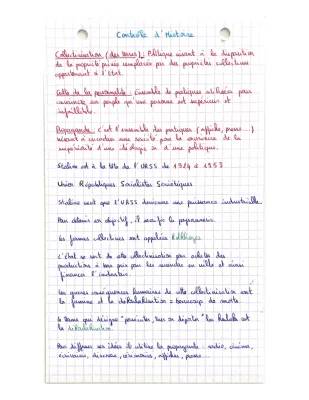 Contrôle d'Histoire
Collectivisation (des terres) : Politique visant à la disparition
de la propriété privée remplacée par des propriétés collectives
appartenant à l'État.
Culte de la personnalité : Ensemble de pratiques utilisées pour
convaincre un peuple qu'une personne est supérieur et
infaillible.
Propagande : c'est l'ensemble des pratiques (affiche, presse...)
visant à convaincre une société pour la convaincre de la
supériorité d'une idéologie ou d'une politique.
Staline est à la tête de l'URSS de 1924 à 1953
Union Républiques Socialistes Soviétiques
Staline veut que l'URSS devienne une puissance industrielle.
Pour obtenir son objectif, il sacrifie la paysannerie.
Les fermes collectives sont appelées Kolkhozes
L'État se sert de cette collectivisation pour acheter des
productions à bas prix pour les revendre en ville et ainsi
financer l'industrie.
Les graves conséquences humaines de cette collectivisation sont
la famine et la dékoulakisation = beaucoup de morts.
Le terme qui désigne "persécuter, tuer ou déporter" les koulaks est
la dékoulakisation
Pour diffuser ses idées il utilise la propagande : radio, cinéma,
écrivains, discours, cérémonies, affiches, presse...